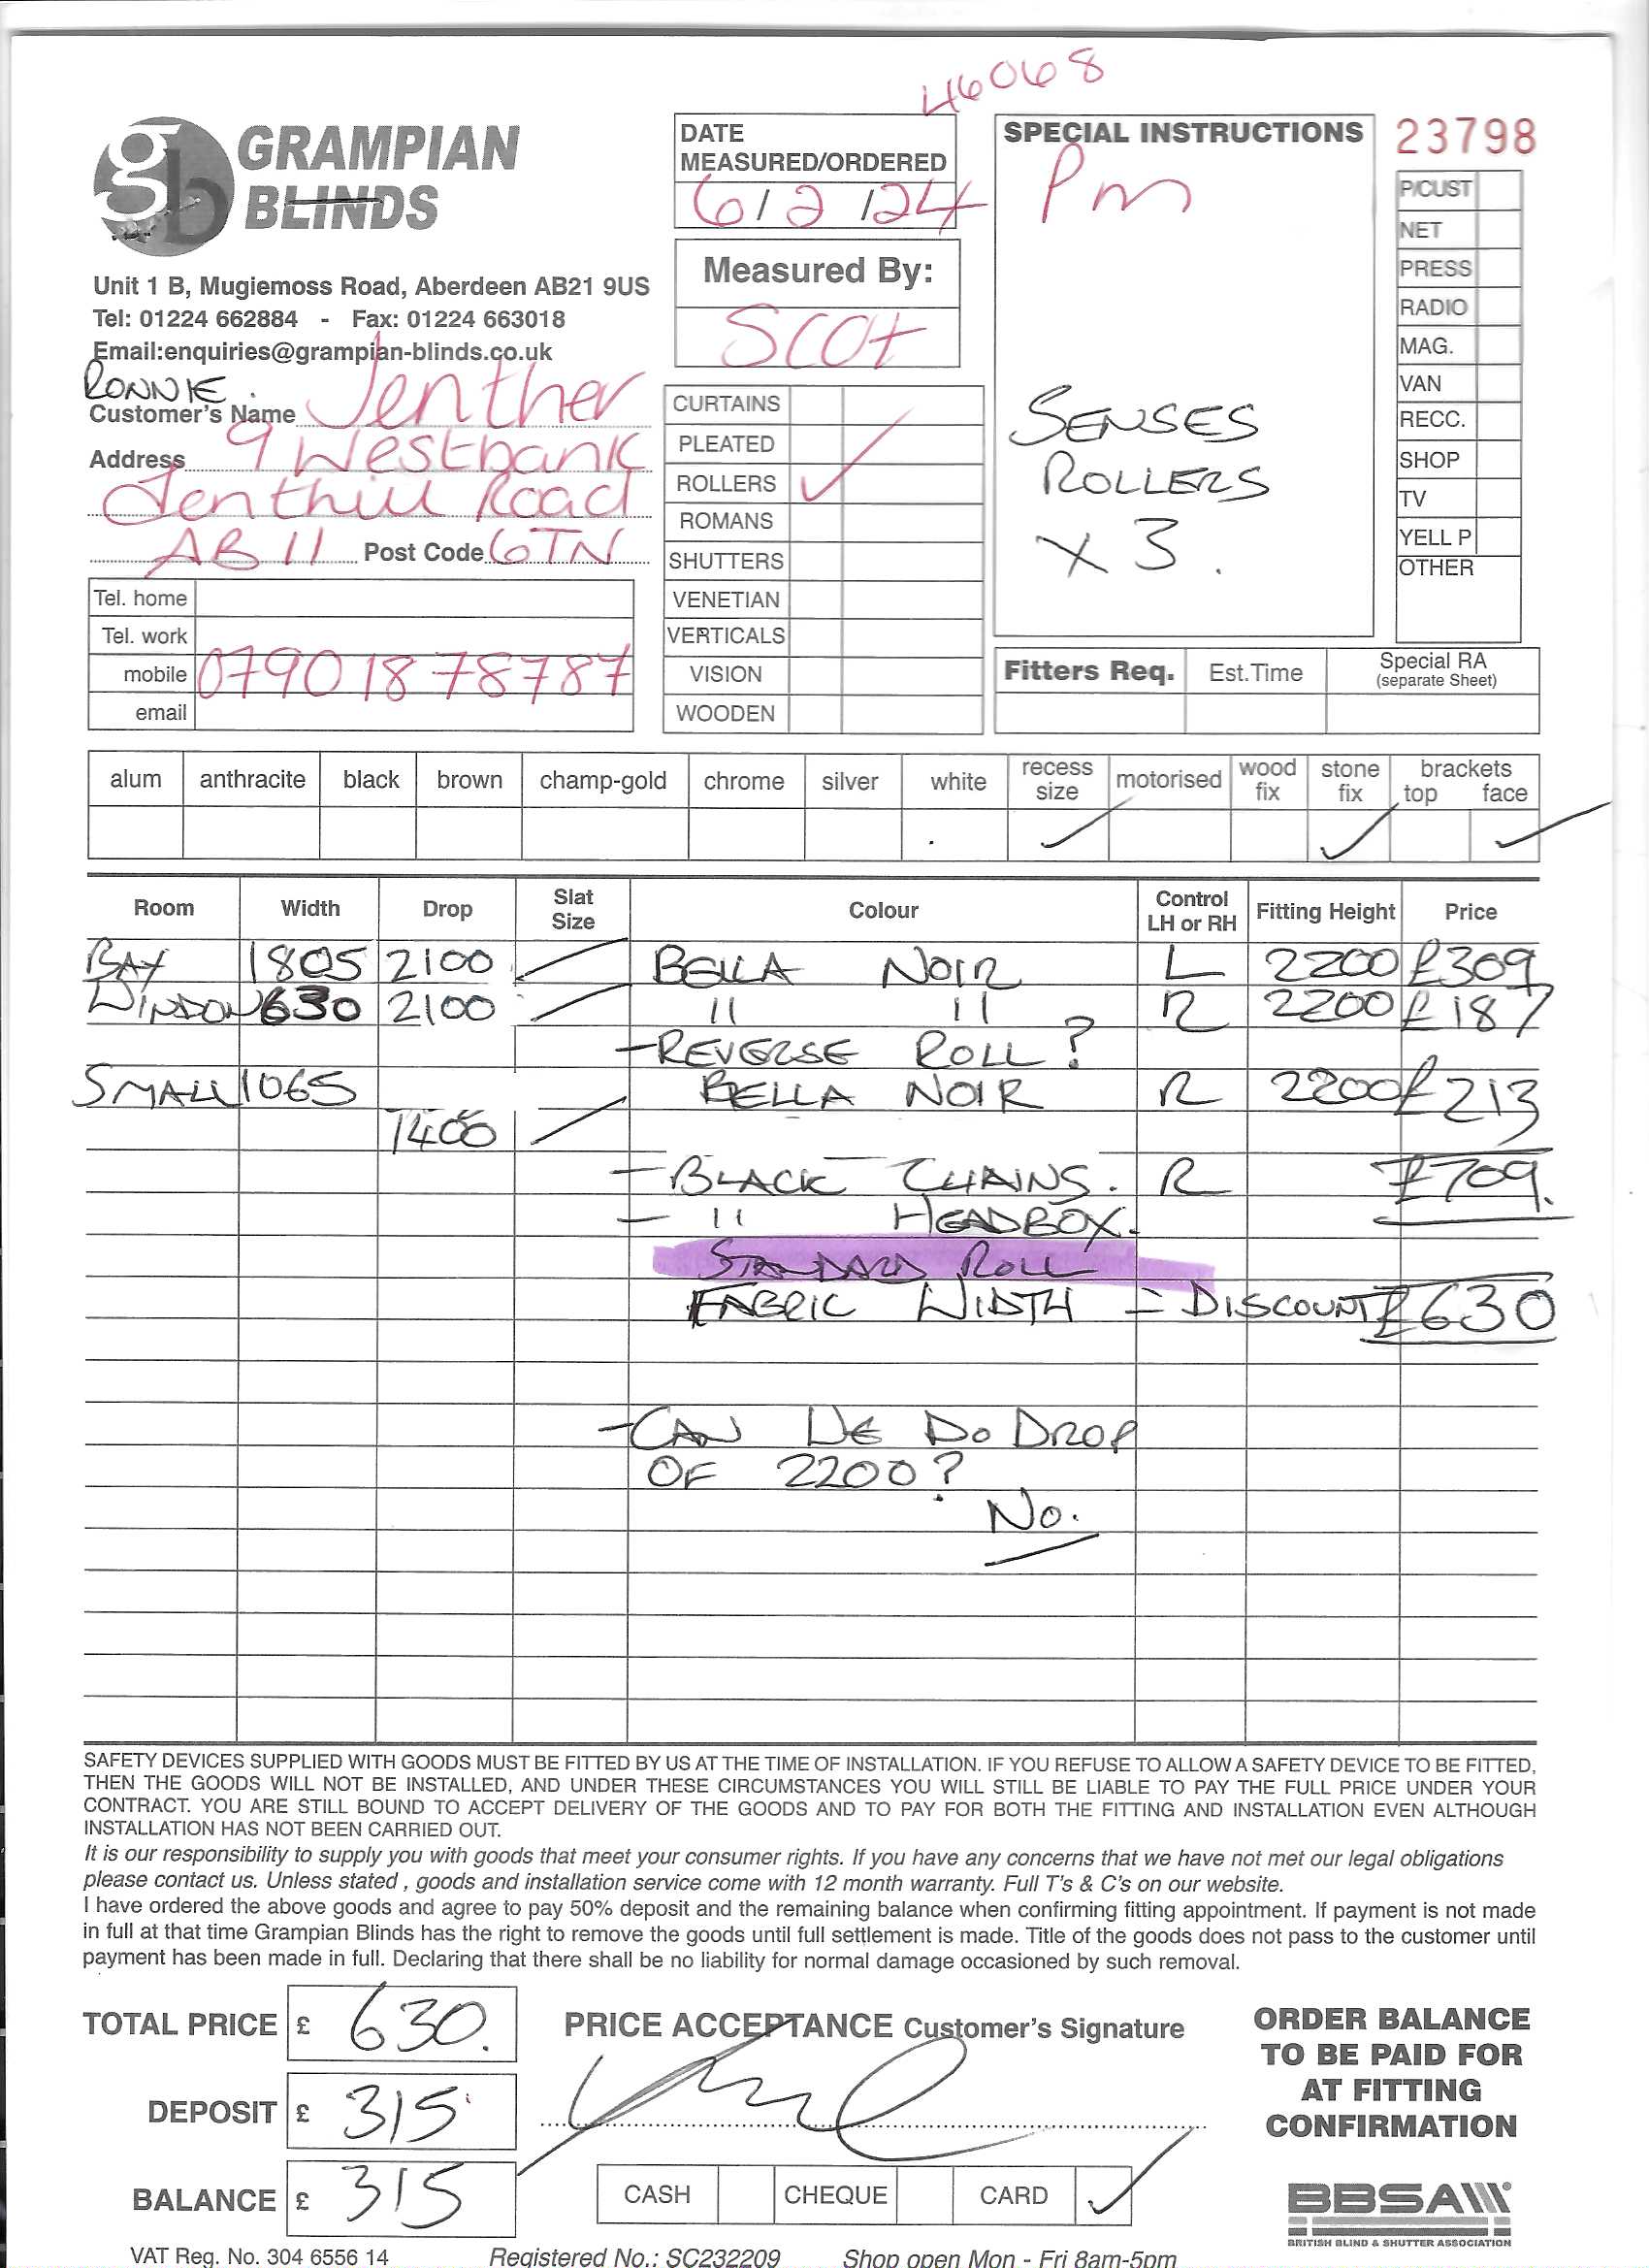 46068
GRAMPIAN
BLINDS
Unit 1 B, Mugiemoss Road, Aberdeen AB21 9US
Tel: 01224 662884 - Fax: 01224 663018
Email:enquiries@grampian-blinds.co.uk
DATE
MEASURED/ORDERED
6/2/24
Measured By:
Scot
SPECIAL INSTRUCTIONS
Pm
SENSES
ROLLERS
X 3.
23798
P/CUST
NET
PRESS
RADIO
MAG.
VAN
RECC.
SHOP
TV
YELL P
OTHER
RONNIE
Customer's Name Jenther
Address 9 Westbank
Road
AB11 Post Code 6TN
Tel. home
Tel. work
mobile 07901878787
email
CURTAINS
PLEATED
ROLLERS ✓
ROMANS
SHUTTERS
VENETIAN
VERTICALS
VISION
WOODEN
Fitters Req. Est.Time Special RA
(separate Sheet)
alum anthracite black brown champ-gold chrome silver white recess size motorised wood fix stone fix brackets top face
✓ ✓ ✓
Room Width Drop Slat Size Colour Control LH or RH Fitting Height Price
BAY 1805 2100 BELLA NOIR L 2200 £309
WINDOW 630 2100 " " R 2200 £187
- REVERSE ROLL?
SMALL 1065 BELLA NOIR R 2200 £213
1400
- BLACK CHAINS. R £709.
- " HEADBOX.
STANDARD ROLL
FABRIC WIDTH - DISCOUNT £630
- CAN WE DO DROP
OF 2200?
No.
SAFETY DEVICES SUPPLIED WITH GOODS MUST BE FITTED BY US AT THE TIME OF INSTALLATION. IF YOU REFUSE TO ALLOW A SAFETY DEVICE TO BE FITTED,
THEN THE GOODS WILL NOT BE INSTALLED, AND UNDER THESE CIRCUMSTANCES YOU WILL STILL BE LIABLE TO PAY THE FULL PRICE UNDER YOUR
CONTRACT. YOU ARE STILL BOUND TO ACCEPT DELIVERY OF THE GOODS AND TO PAY FOR BOTH THE FITTING AND INSTALLATION EVEN ALTHOUGH
INSTALLATION HAS NOT BEEN CARRIED OUT.
It is our responsibility to supply you with goods that meet your consumer rights. If you have any concerns that we have not met our legal obligations
please contact us. Unless stated , goods and installation service come with 12 month warranty. Full T's & C's on our website.
I have ordered the above goods and agree to pay 50% deposit and the remaining balance when confirming fitting appointment. If payment is not made
in full at that time Grampian Blinds has the right to remove the goods until full settlement is made. Title of the goods does not pass to the customer until
payment has been made in full. Declaring that there shall be no liability for normal damage occasioned by such removal.
TOTAL PRICE £ 630.
DEPOSIT £ 315
BALANCE £ 315
PRICE ACCEPTANCE Customer's Signature
CASH CHEQUE CARD ✓
ORDER BALANCE
TO BE PAID FOR
AT FITTING
CONFIRMATION
BBSA
BRITISH BLIND & SHUTTER ASSOCIATION
VAT Reg. No. 304 6556 14 Registered No.: SC232209 Shop open Mon - Fri 8am-5pm